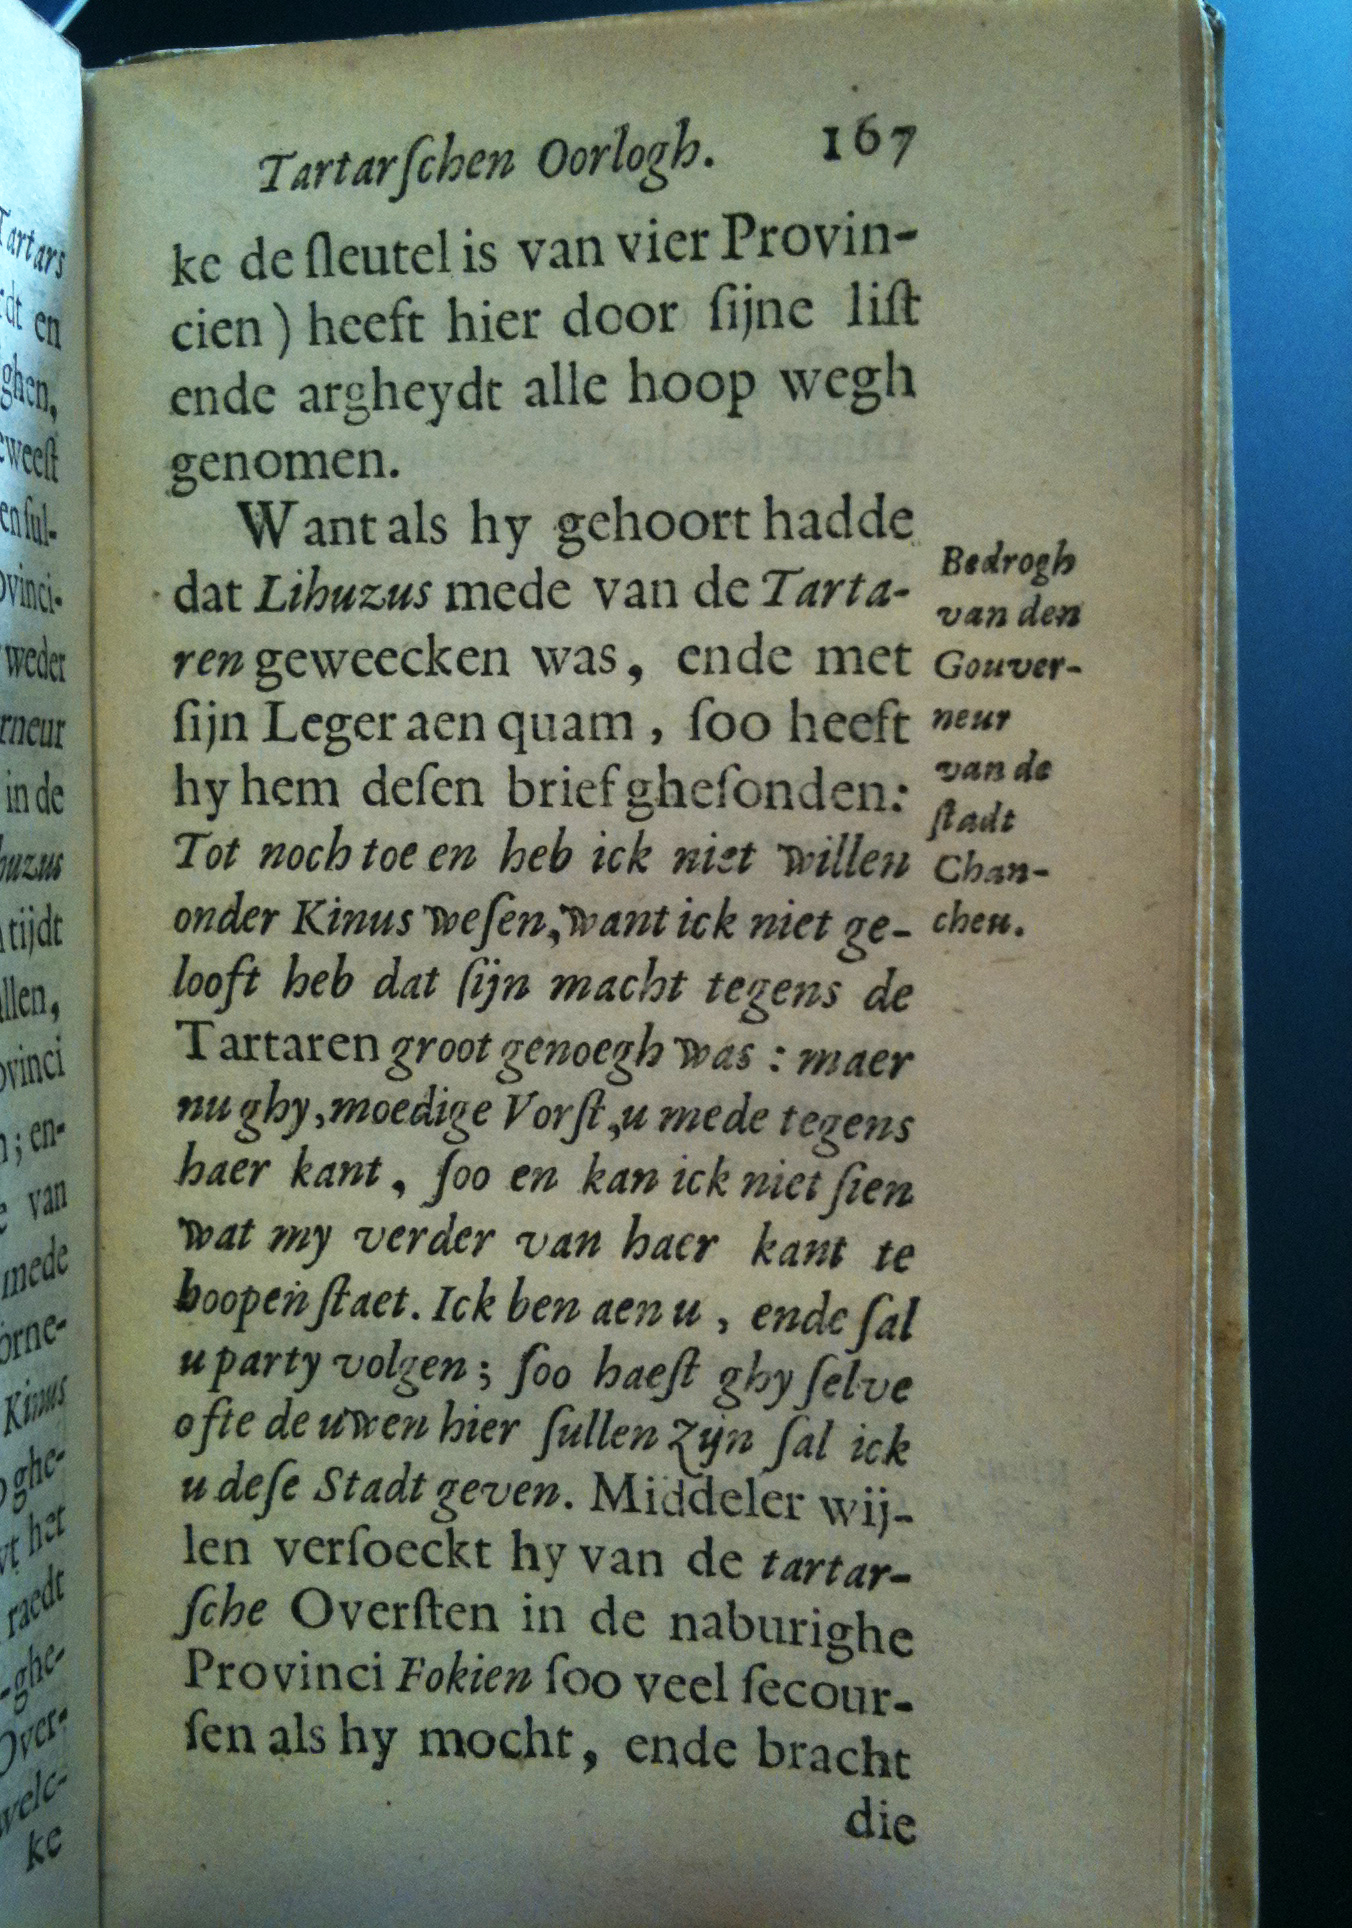 Tartars
rdt en
ghen,
eweeſt
enſul-
ovinci-
weder
rneur
in de
huzus
tijdt
llen,
ovinci
; en-
van
mede
orne-
Kinus
ghe-
het
raedt
-ghe-
Over-
welc-
ke
Tartarſchen Oorlogh. 167
ke de ſleutel is van vier Provin-
cien) heeft hier door ſijne liſt
ende argheydt alle hoop wegh
genomen.
Want als hy gehoort hadde
dat Lihuzus mede van de Tarta-
ren geweecken was, ende met
ſijn Leger aen quam, ſoo heeft
hy hem deſen brief gheſonden:
Tot noch toe en heb ick niet willen
onder Kinus weſen, want ick niet ge-
looft heb dat ſijn macht tegens de
Tartaren groot genoegh was: maer
nu ghy, moedige Vorſt, u mede tegens
haer kant, ſoo en kan ick niet ſien
wat my verder van haer kant te
hoopen ſtaet. Ick ben aen u, ende ſal
u party volgen; ſoo haeſt ghy ſelve
ofte de uwen hier ſullen zijn ſal ick
u deſe Stadt geven. Middeler wij-
len verſoeckt hy van de tartar-
ſche Overſten in de naburighe
Provinci Fokien ſoo veel ſecour-
ſen als hy mocht, ende bracht
die
Bedrogh
van den
Gouver-
neur
van de
ſtadt
Chan-
cheu.